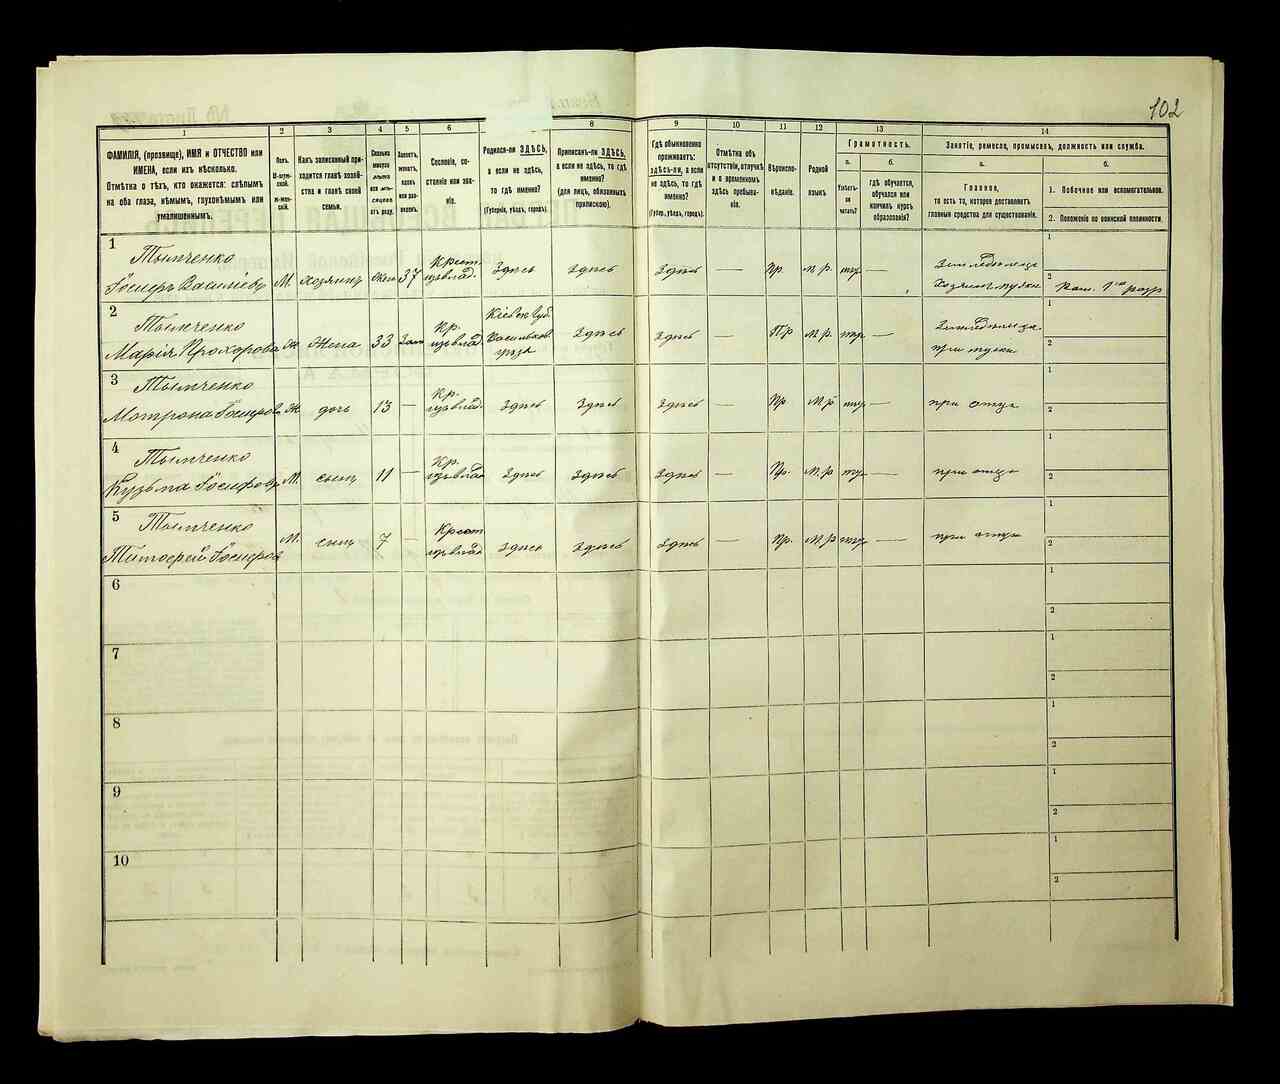 102
1
2
3
4
5
6
8
9
10
11
12
13
14
ФАМИЛІЯ, (прозвище), ИМЯ и ОТЧЕСТВО или
ИМЕНА, если ихъ нѣсколько.
Отмѣтка о тѣхъ, кто окажется: слѣпымъ
на оба глаза, нѣмымъ, глухонѣмымъ или
умалишеннымъ.
Полъ.
М-муж-
ской.
Ж-жен-
скій.
Какъ записанный при-
ходится главѣ хозяй-
ства и главѣ своей
семьи.
Сколько
минуло
лѣтъ
или мѣ-
сяцевъ
отъ роду.
Холостъ,
женатъ,
вдовъ
или раз-
веденъ.
Сословіе, со-
стояніе или зва-
ніе.
Родился-ли ЗДѢСЬ,
а если не здѣсь,
то гдѣ именно?
(Губернія, уѣздъ, городъ).
Приписанъ-ли ЗДѢСЬ,
а если не здѣсь, то гдѣ
именно?
(для лицъ, обязанныхъ
припискою).
Гдѣ обыкновенно
проживаетъ:
здѣсь-ли, а если
не здѣсь, то гдѣ
именно?
(Губер., уѣздъ, городъ).
Отмѣтка объ
отсутствіи, отлучкѣ
и о временномъ
здѣсь пребыва-
ніи.
Вѣроиспо-
вѣданіе.
Родной
языкъ.
Грамотность.
а.
Умѣетъ-
ли
читать?
б.
гдѣ обучается,
обучался или
кончилъ курсъ
образованія?
Занятіе, ремесло, промыселъ, должность или служба.
а.
Главное,
то есть то, которое доставляетъ
главныя средства для существованія.
б.
1. Побочное или вспомогательное.
2. Положеніе по воинской повинности.
1
Тымченко
Іосифъ Васильевъ М. хозяинъ Жен 37 Крест. изъ влад. здѣсь здѣсь здѣсь — Пр. М.Р. —
Земледѣлецъ
Хозяинъ
1
2
2
Тымченко
Марія Прохорова Ж Жена 33 Зам Кр. изъ влад. Кіевск. Губ. Васильков. уѣзда здѣсь здѣсь — Пр М.Р. —
Земледѣлица
при мужѣ
1
2
3
Тымченко
Мотрона Іосифова Ж дочь 13 — Кр. изъ влад. здѣсь здѣсь здѣсь — Пр М.Р —
при отцѣ
1
2
4
Тымченко
Кузьма Іосифовъ М. сынъ 11 — Кр. изъ влад здѣсь здѣсь здѣсь — Пр. М.Р —
при отцѣ
1
2
5
Тымченко
Тимофей Іосифов М. сынъ 7 — Крест изъ влад здѣсь здѣсь здѣсь — Пр. М.Р —
при отцѣ
1
2
6
1
2
7
1
2
8
1
2
9
1
2
10
1
2